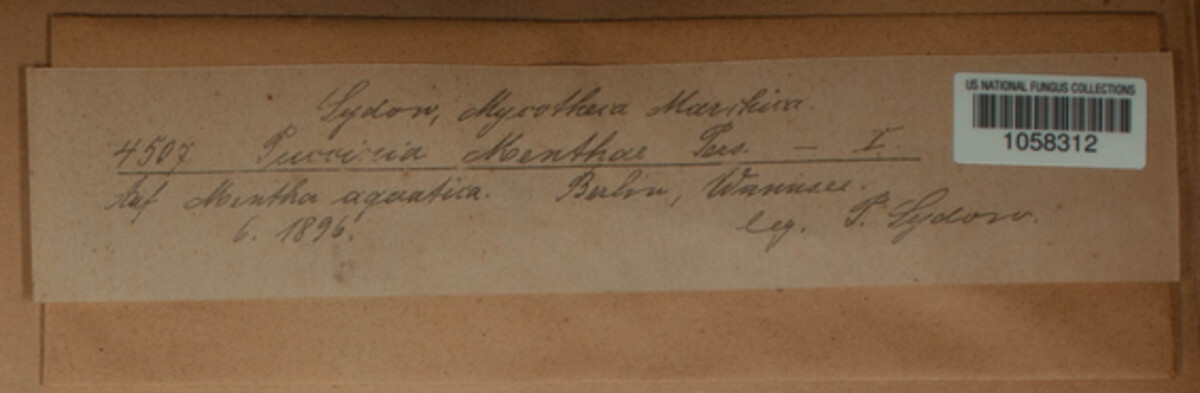 Sydow, Mycotheca Marchica.
US NATIONAL FUNGUS COLLECTIONS
1058312
4507. Puccinia Menthae Pers. — I.
Auf Mentha aquatica. Berlin, Wannsee.
6. 1896. leg. P. Sydow.